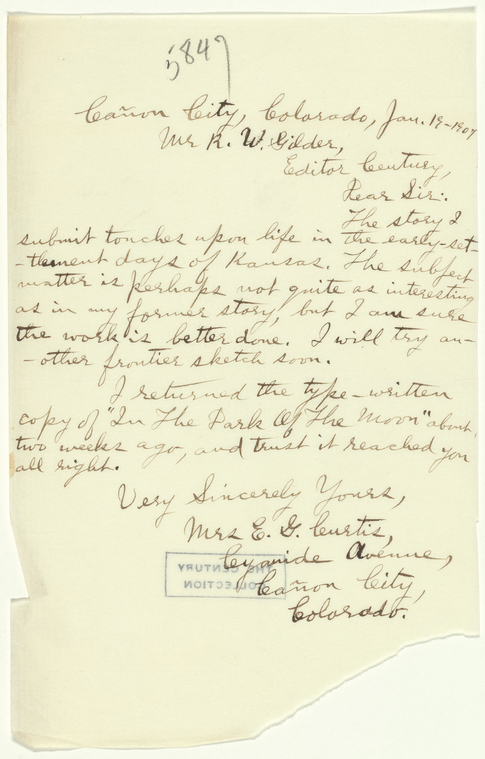 5847
Cañon City, Colorado, Jan. 19-1907
Mr R. W. Gilder,
Editor Century,
Dear Sir:
The story I
submit touches upon life in the early-set-
-tlement days of Kansas. The subject
matter is perhaps not quite as interesting
as in my former story, but I am sure
the work is better done. I will try an-
-other frontier sketch soon.
I returned the type-written
copy of "In The Dark Of The Moon" about
two weeks ago, and trust it reached you
all right.
Very Sincerely Yours,
Mrs E. G. Curtis,
Cyanide Avenue,
Cañon City,
Colorado.
THE CENTURY
COLLECTION